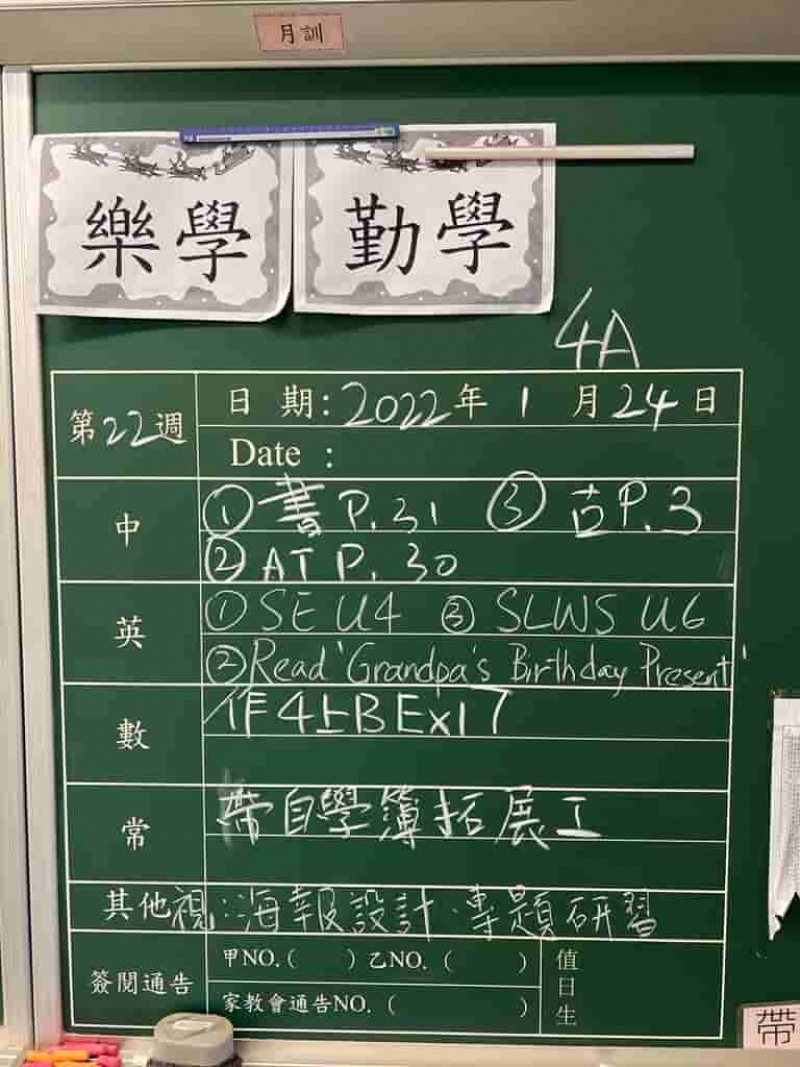 月訓
樂學 勤學
4A
第22週
日 期：2022年 1 月24日
Date ：
中
① 書 P.31 ③ 古P.3
② AT P.30
英
① SE U4 ③ SLWS U6
② Read 'Grandpa's Birthday Present'
數
作4上B Ex17
常
帶自學簿拓展工
其他 視：海報設計．專題研習
簽閱通告
甲NO.（ ）乙NO.（ ）
家教會通告NO.（ ）
值日生
帶